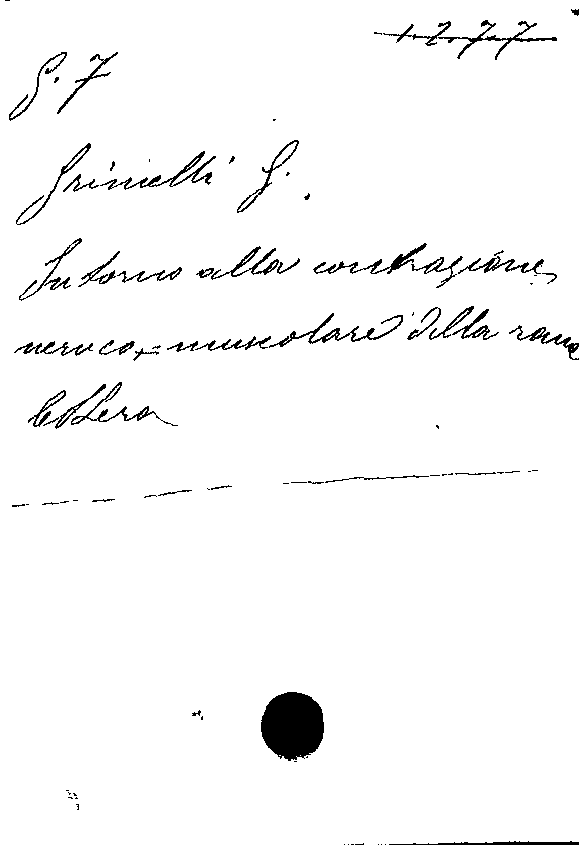 1277
G. 7
Grinelli G.
Intorno alla contrazione
nerveo-muscolare della rana
Lettera